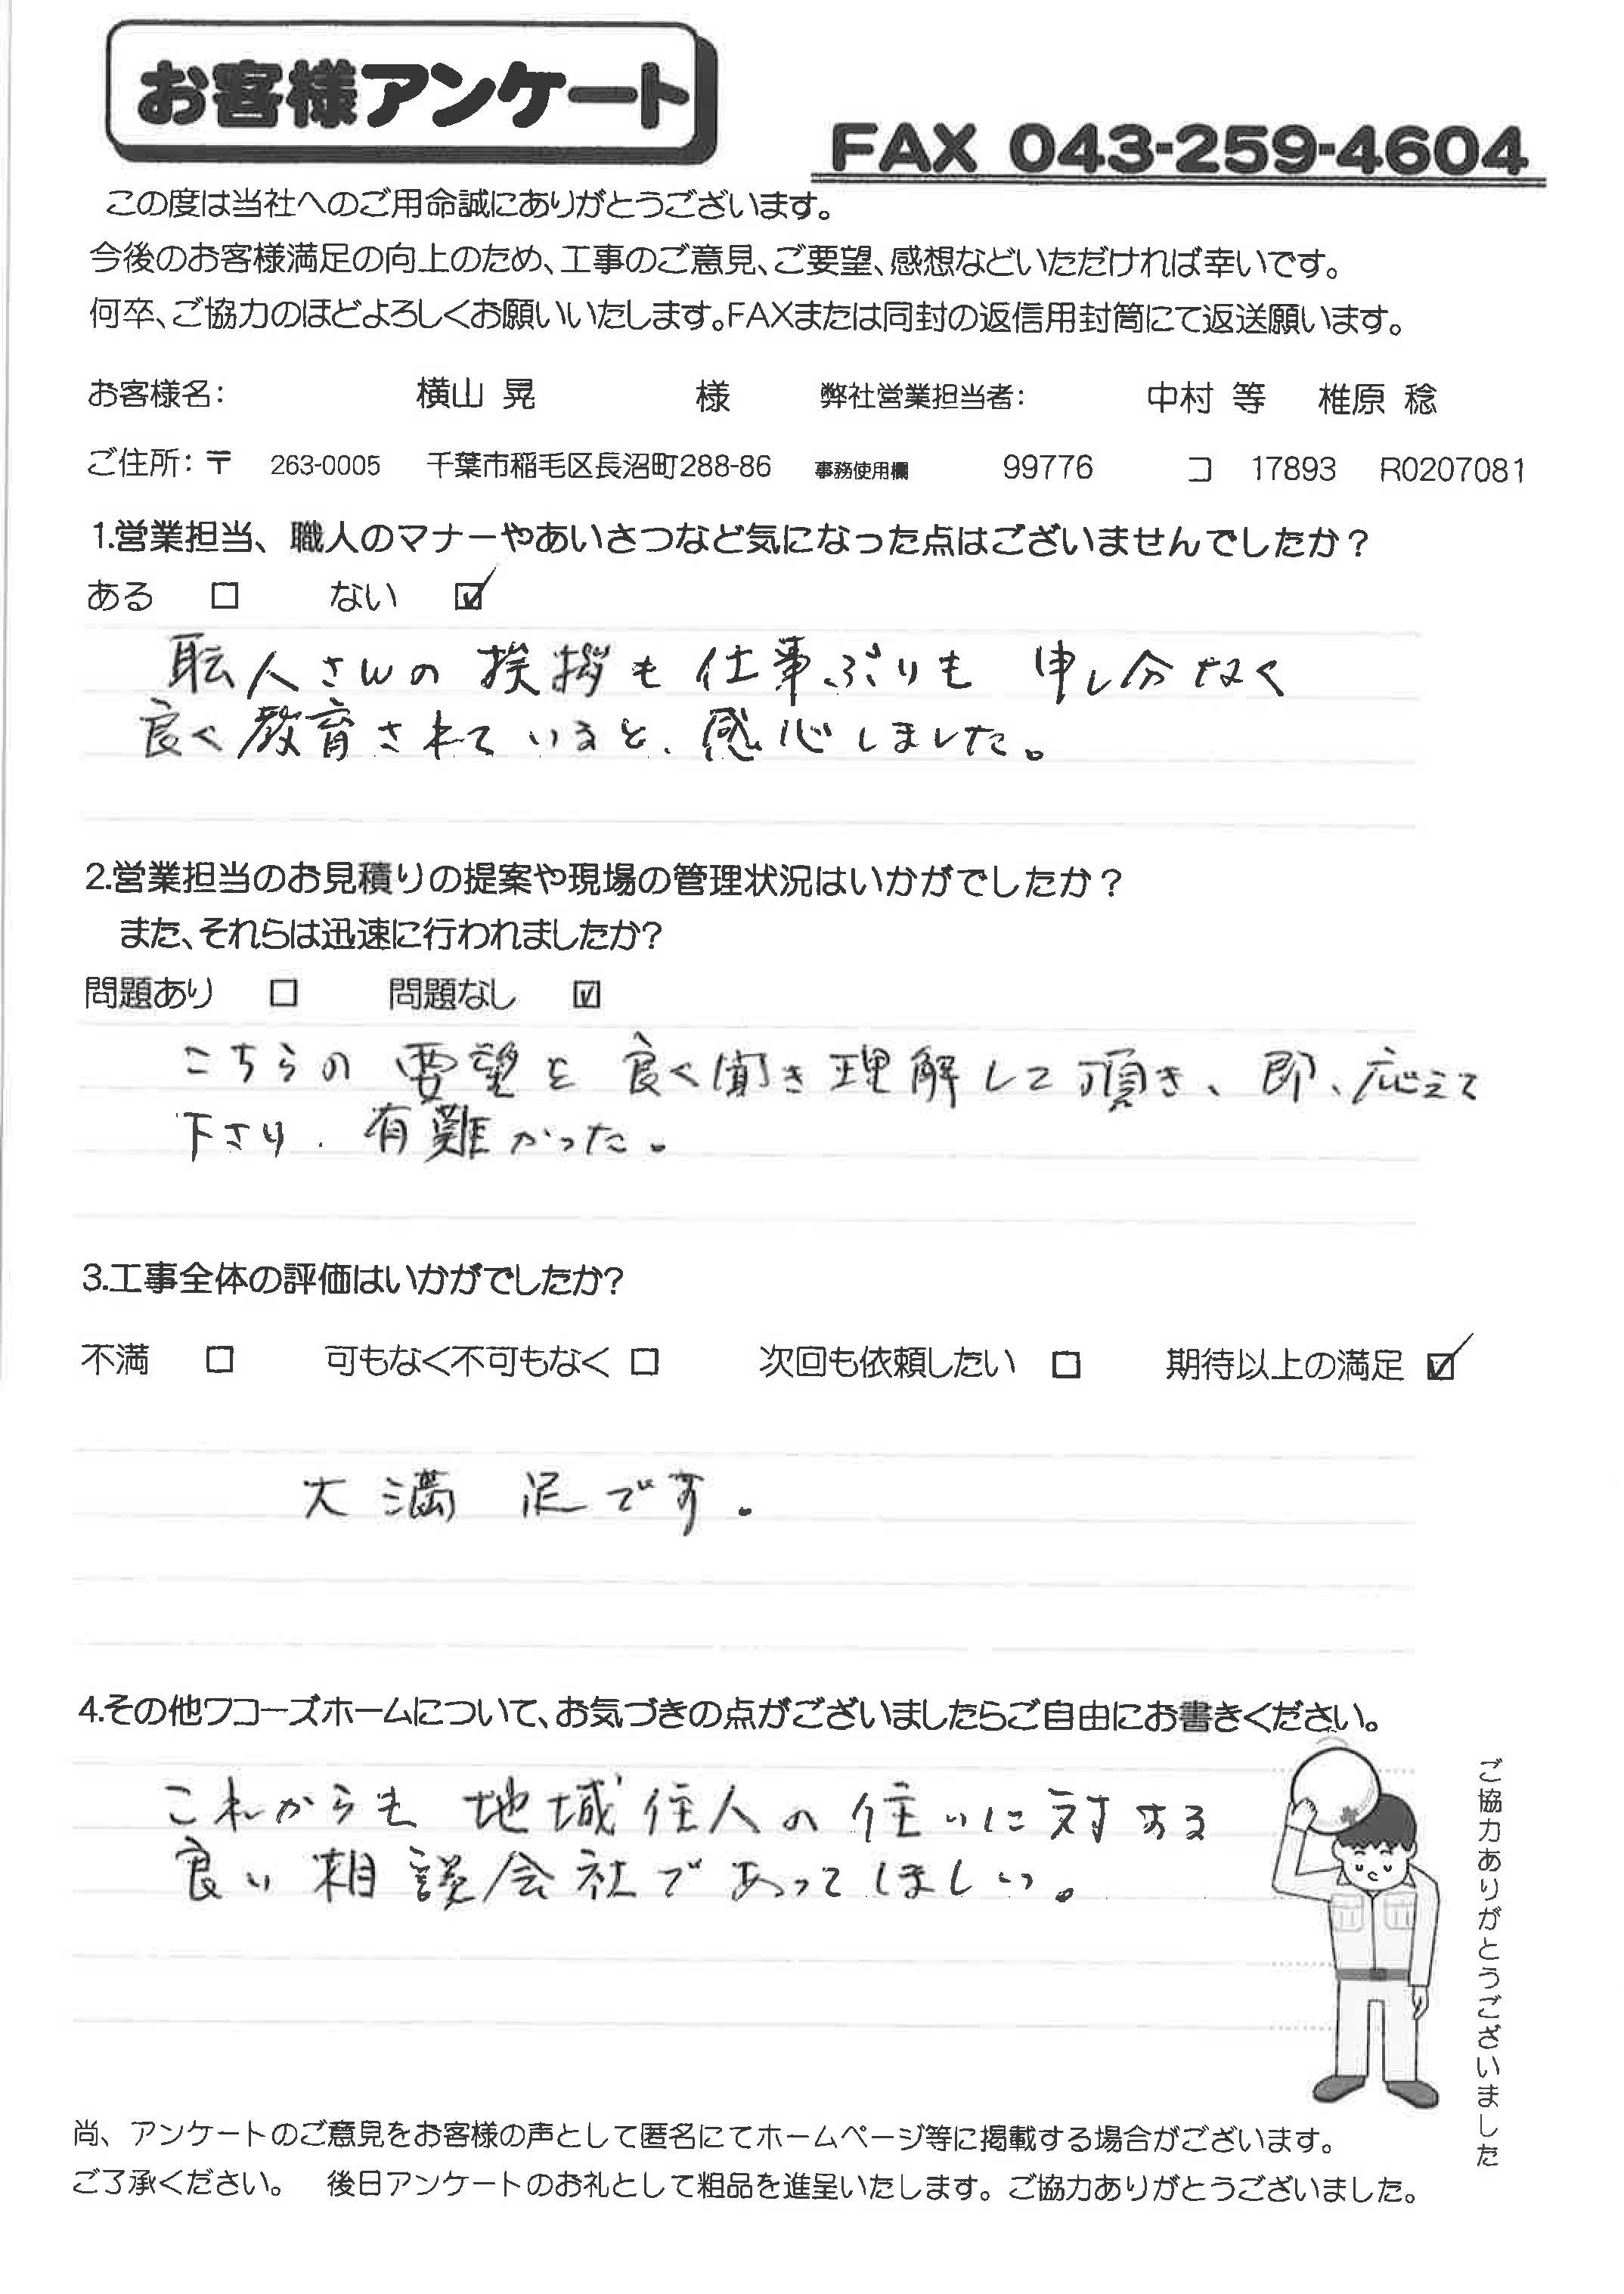 お客様アンケート
FAX 043-259-4604
この度は当社へのご用命誠にありがとうございます。
今後のお客様満足の向上のため、工事のご意見、ご要望、感想などいただければ幸いです。
何卒、ご協力のほどよろしくお願いいたします。FAXまたは同封の返信用封筒にて返送願います。
お客様名: 横山 晃 様 弊社営業担当者: 中村 等 椎原 稔
ご住所:〒 263-0005 千葉市稲毛区長沼町288-86 事務使用欄 99776 コ 17893 R0207081
1.営業担当、職人のマナーやあいさつなど気になった点はございませんでしたか?
ある □ ない ☑
職人さんの挨拶も仕事ぶりも申し分なく
良く教育されていると、感心しました。
2.営業担当のお見積りの提案や現場の管理状況はいかがでしたか?
また、それらは迅速に行われましたか?
問題あり □ 問題なし ☑
こちらの要望を良く聞き理解して頂き、即、応えて
下さり、有難かった。
3.工事全体の評価はいかがでしたか?
不満 □ 可もなく不可もなく □ 次回も依頼したい □ 期待以上の満足 ☑
大満足です。
4.その他ワコーズホームについて、お気づきの点がございましたらご自由にお書きください。
これからも地域住人の住いに対する
良い相談会社であってほしい。
ご協力ありがとうございました
尚、アンケートのご意見をお客様の声として匿名にてホームページ等に掲載する場合がございます。
ご了承ください。 後日アンケートのお礼として粗品を進呈いたします。ご協力ありがとうございました。